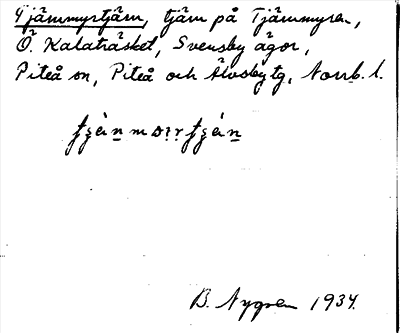 Tjämmyrtjärn, tjärn på Tjämmyran,
Ö. Kalaträsket, Svensby ägor,
Piteå sn, Piteå och Älvsby tg, Norrb. l.
B. Nygren 1934.